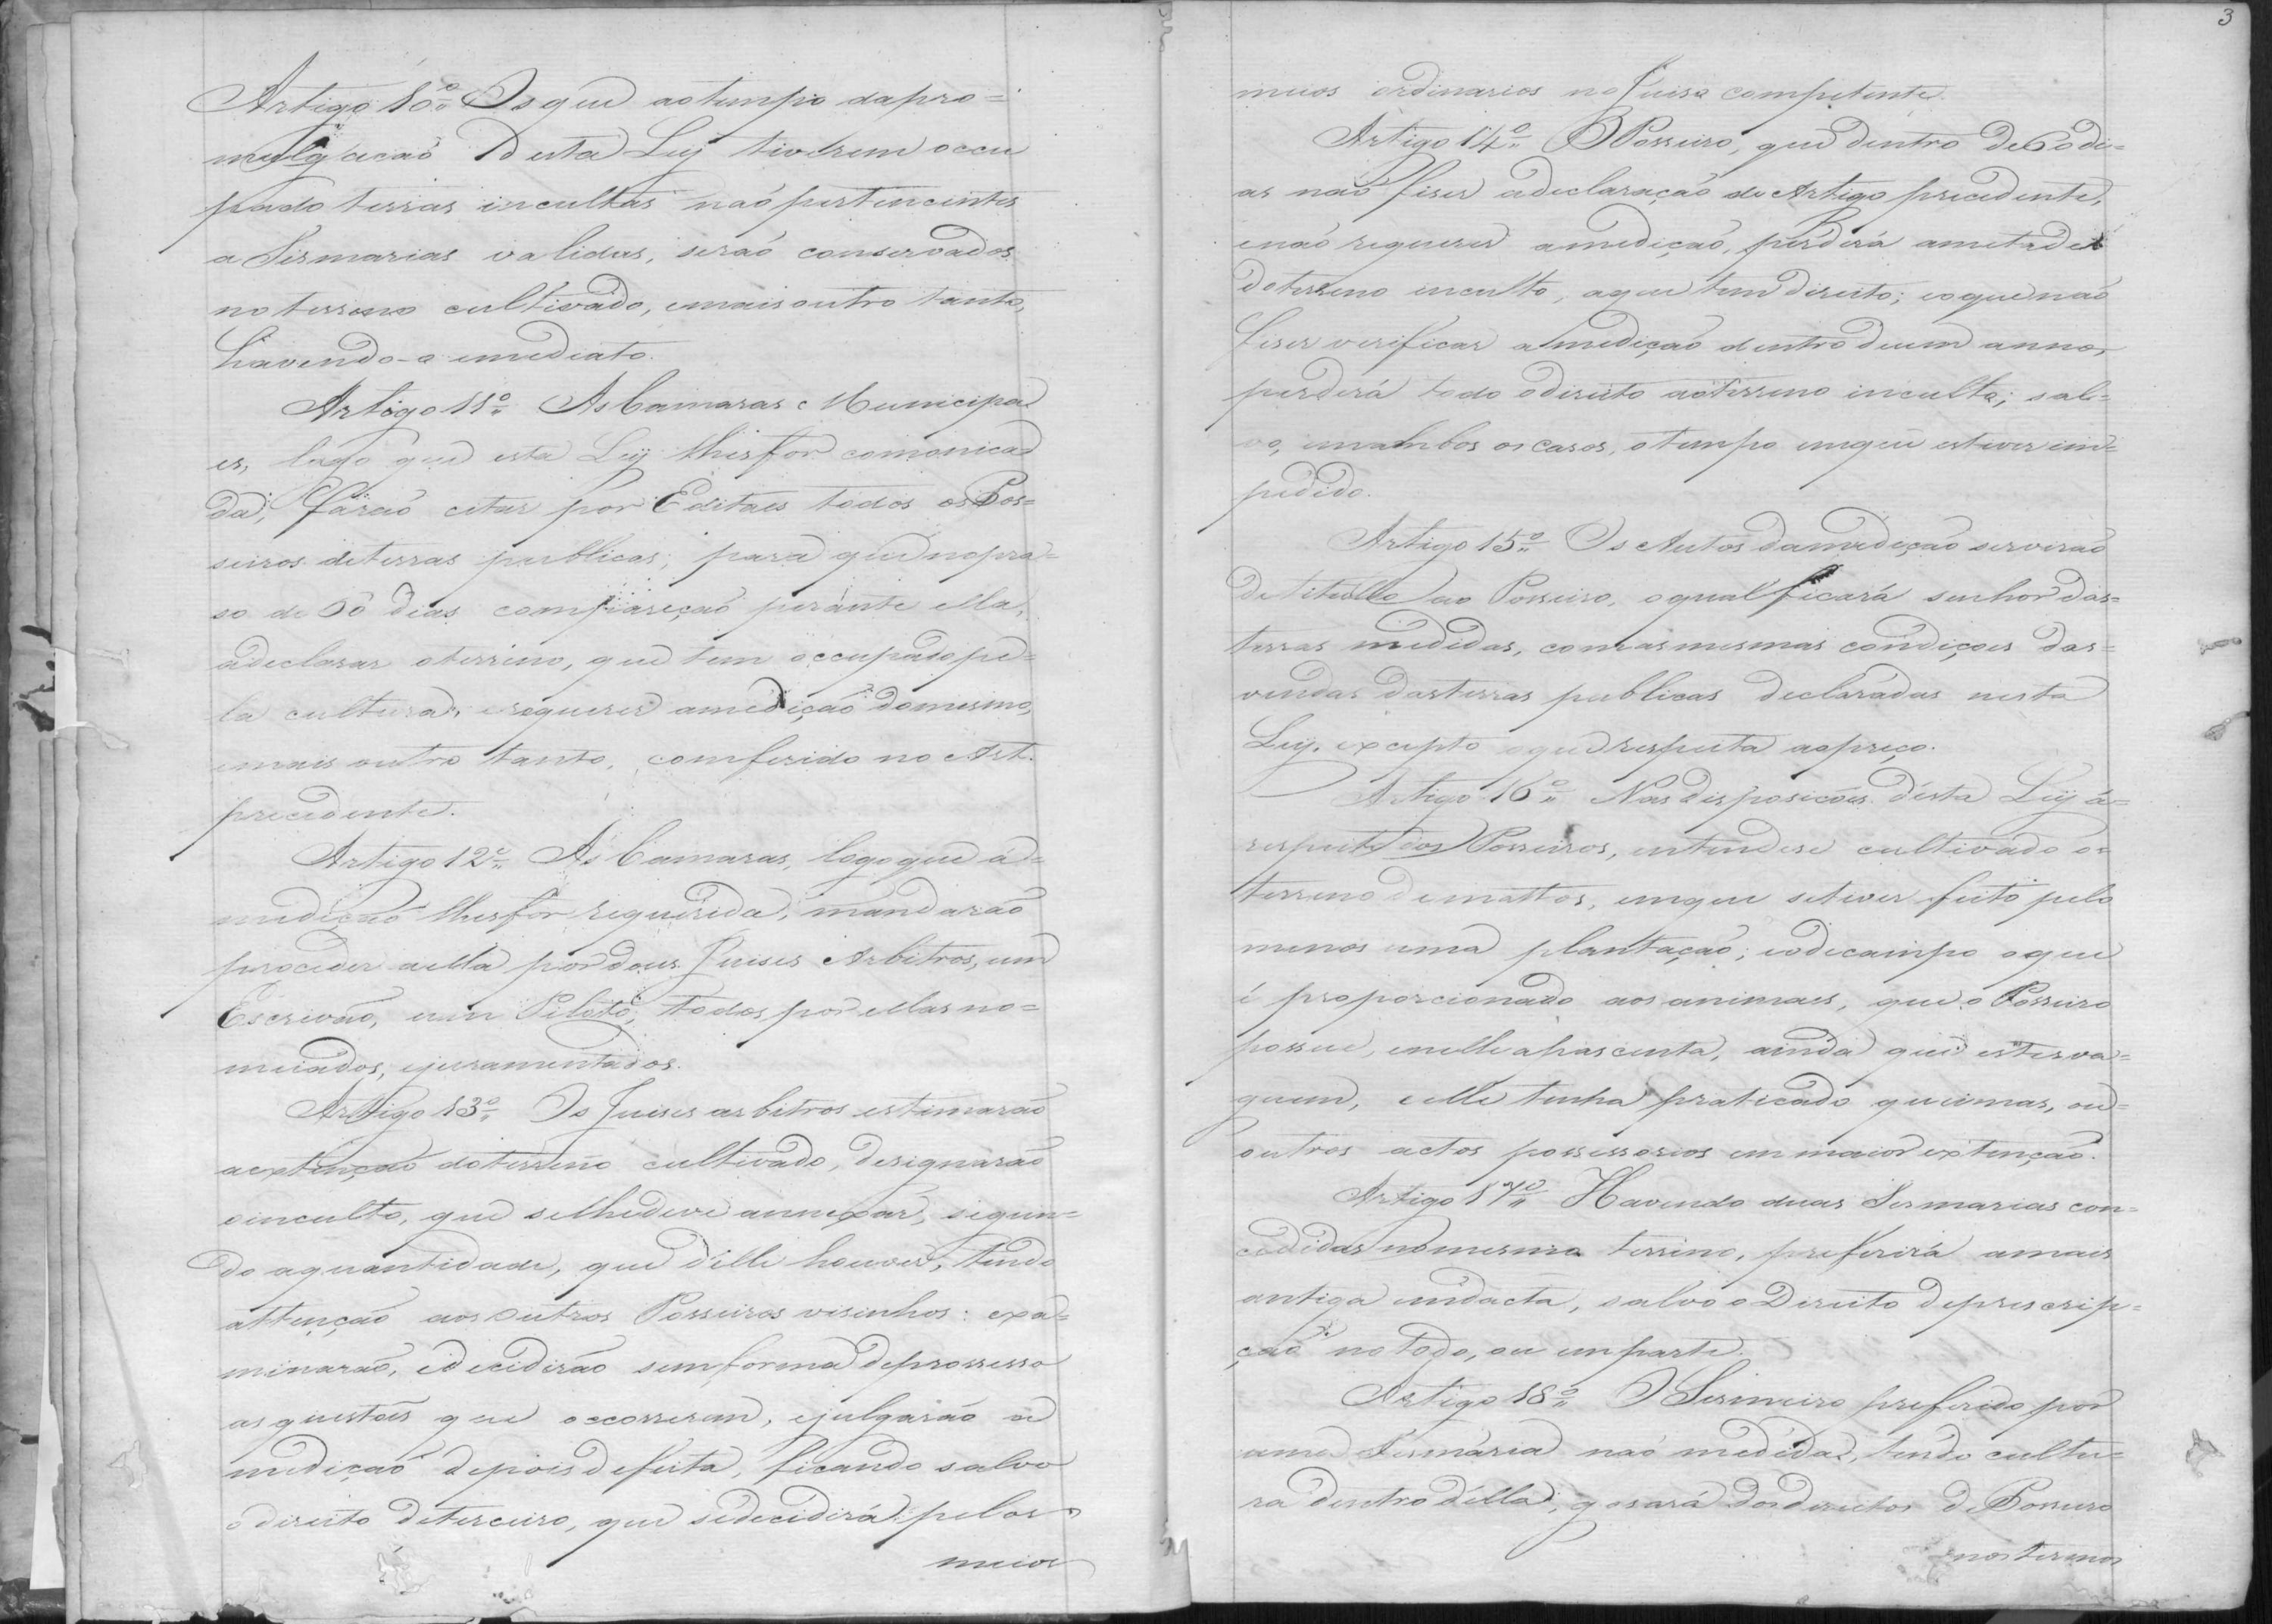 Artigo 10º Os que ao tempo da pro=
mulgacaõ desta Ley tiverem occu
pado terras incultas naõ pertencentes
a Sismarias validas, seraõ conservados
no terreno cultivado, e mais outro tanto,
havendo-o immediato.
Artigo 11º As Camaras Municipa
es, logo que esta Ley lhes for comonica
da, faraõ citar por Editaes todos os Pos=
seiros de terras publicas, para que no pra=
so de 60 dias compareçaõ perante ella,
a declarar o terreno, que tem occupado pe=
la cultura, e requerer a mediçaõ do mesmo,
e mais outro tanto, comferido no Art.
precedente.
Artigo 12º As Camaras, logo que á=
mediçaõ lhes for requerida, mandaraõ
proceder a ella por dous Juises Arbitros, um
Escrivaõ, e um Piloto, todos por ellas no=
meiados, e juramentados.
Artigo 13º Os Juises arbitros estimaraõ
a extençaõ do terreno cultivado, designaraõ
o inculto, que se lhe deve annexar, segun=
do a quantidade, que d'elle houver, tendo
attençaõ aos outros Posseiros visinhos: exa=
minaraõ, e decidirão sem forma de prossesso
as questoẽs que occorrerem, e julgarão a
mediçaõ depois de feita, ficando salvo
o direito de terceiro, que se decidirá pelos
meios
3
meios ordinarios no Juiso competente.
Artigo 14º O Posseiro, que dentro de 60 di=
as naõ fiser a declaração do Artigo precedente,
e naõ requerer a mediçaõ, perderá ametade
do terreno inculto, a que tem direito; e o que naõ
fiser verificar a mediçaõ dentro de um anno,
perderá todo o direito ao terreno inculto; sal=
vo, em ambos os casos, o tempo em que estiver im=
pedido.
Artigo 15º Os Autos da mediçaõ serviraõ
de titullo ao Posseiro, o qual ficará senhor das=
terras medidas, com as mesmas condições das=
vendas das terras publicas declaradas nesta
Ley, excepto o que respeita ao preço.
Artigo 16º Nas disposicões d'esta Ley á=
respeito dos Posseiros, entende se cultivado o=
terreno de mattos, em que se tiver feito pelo
menos uma plantaçaõ; e o de campo o que
é proporcionado aos animaes, que o Posseiro
possue, e nelle apascenta, ainda que estes va=
guem, e elle tenha praticado queimas, ou=
outros actos possessorios em maior extençaõ.
Artigo 17º Havendo duas Sismarias con=
cedidas no mesmo terreno, preferirá a mais
antiga em dacta, salvo o Direito de prescrip=
çaõ no todo, ou em parte.
Artigo 18º O Sesmeiro preferido por
uma Sismaria naõ medida, tendo cultu=
ra dentro d'ella, gosará dos direitos de Posseiro
nos termos